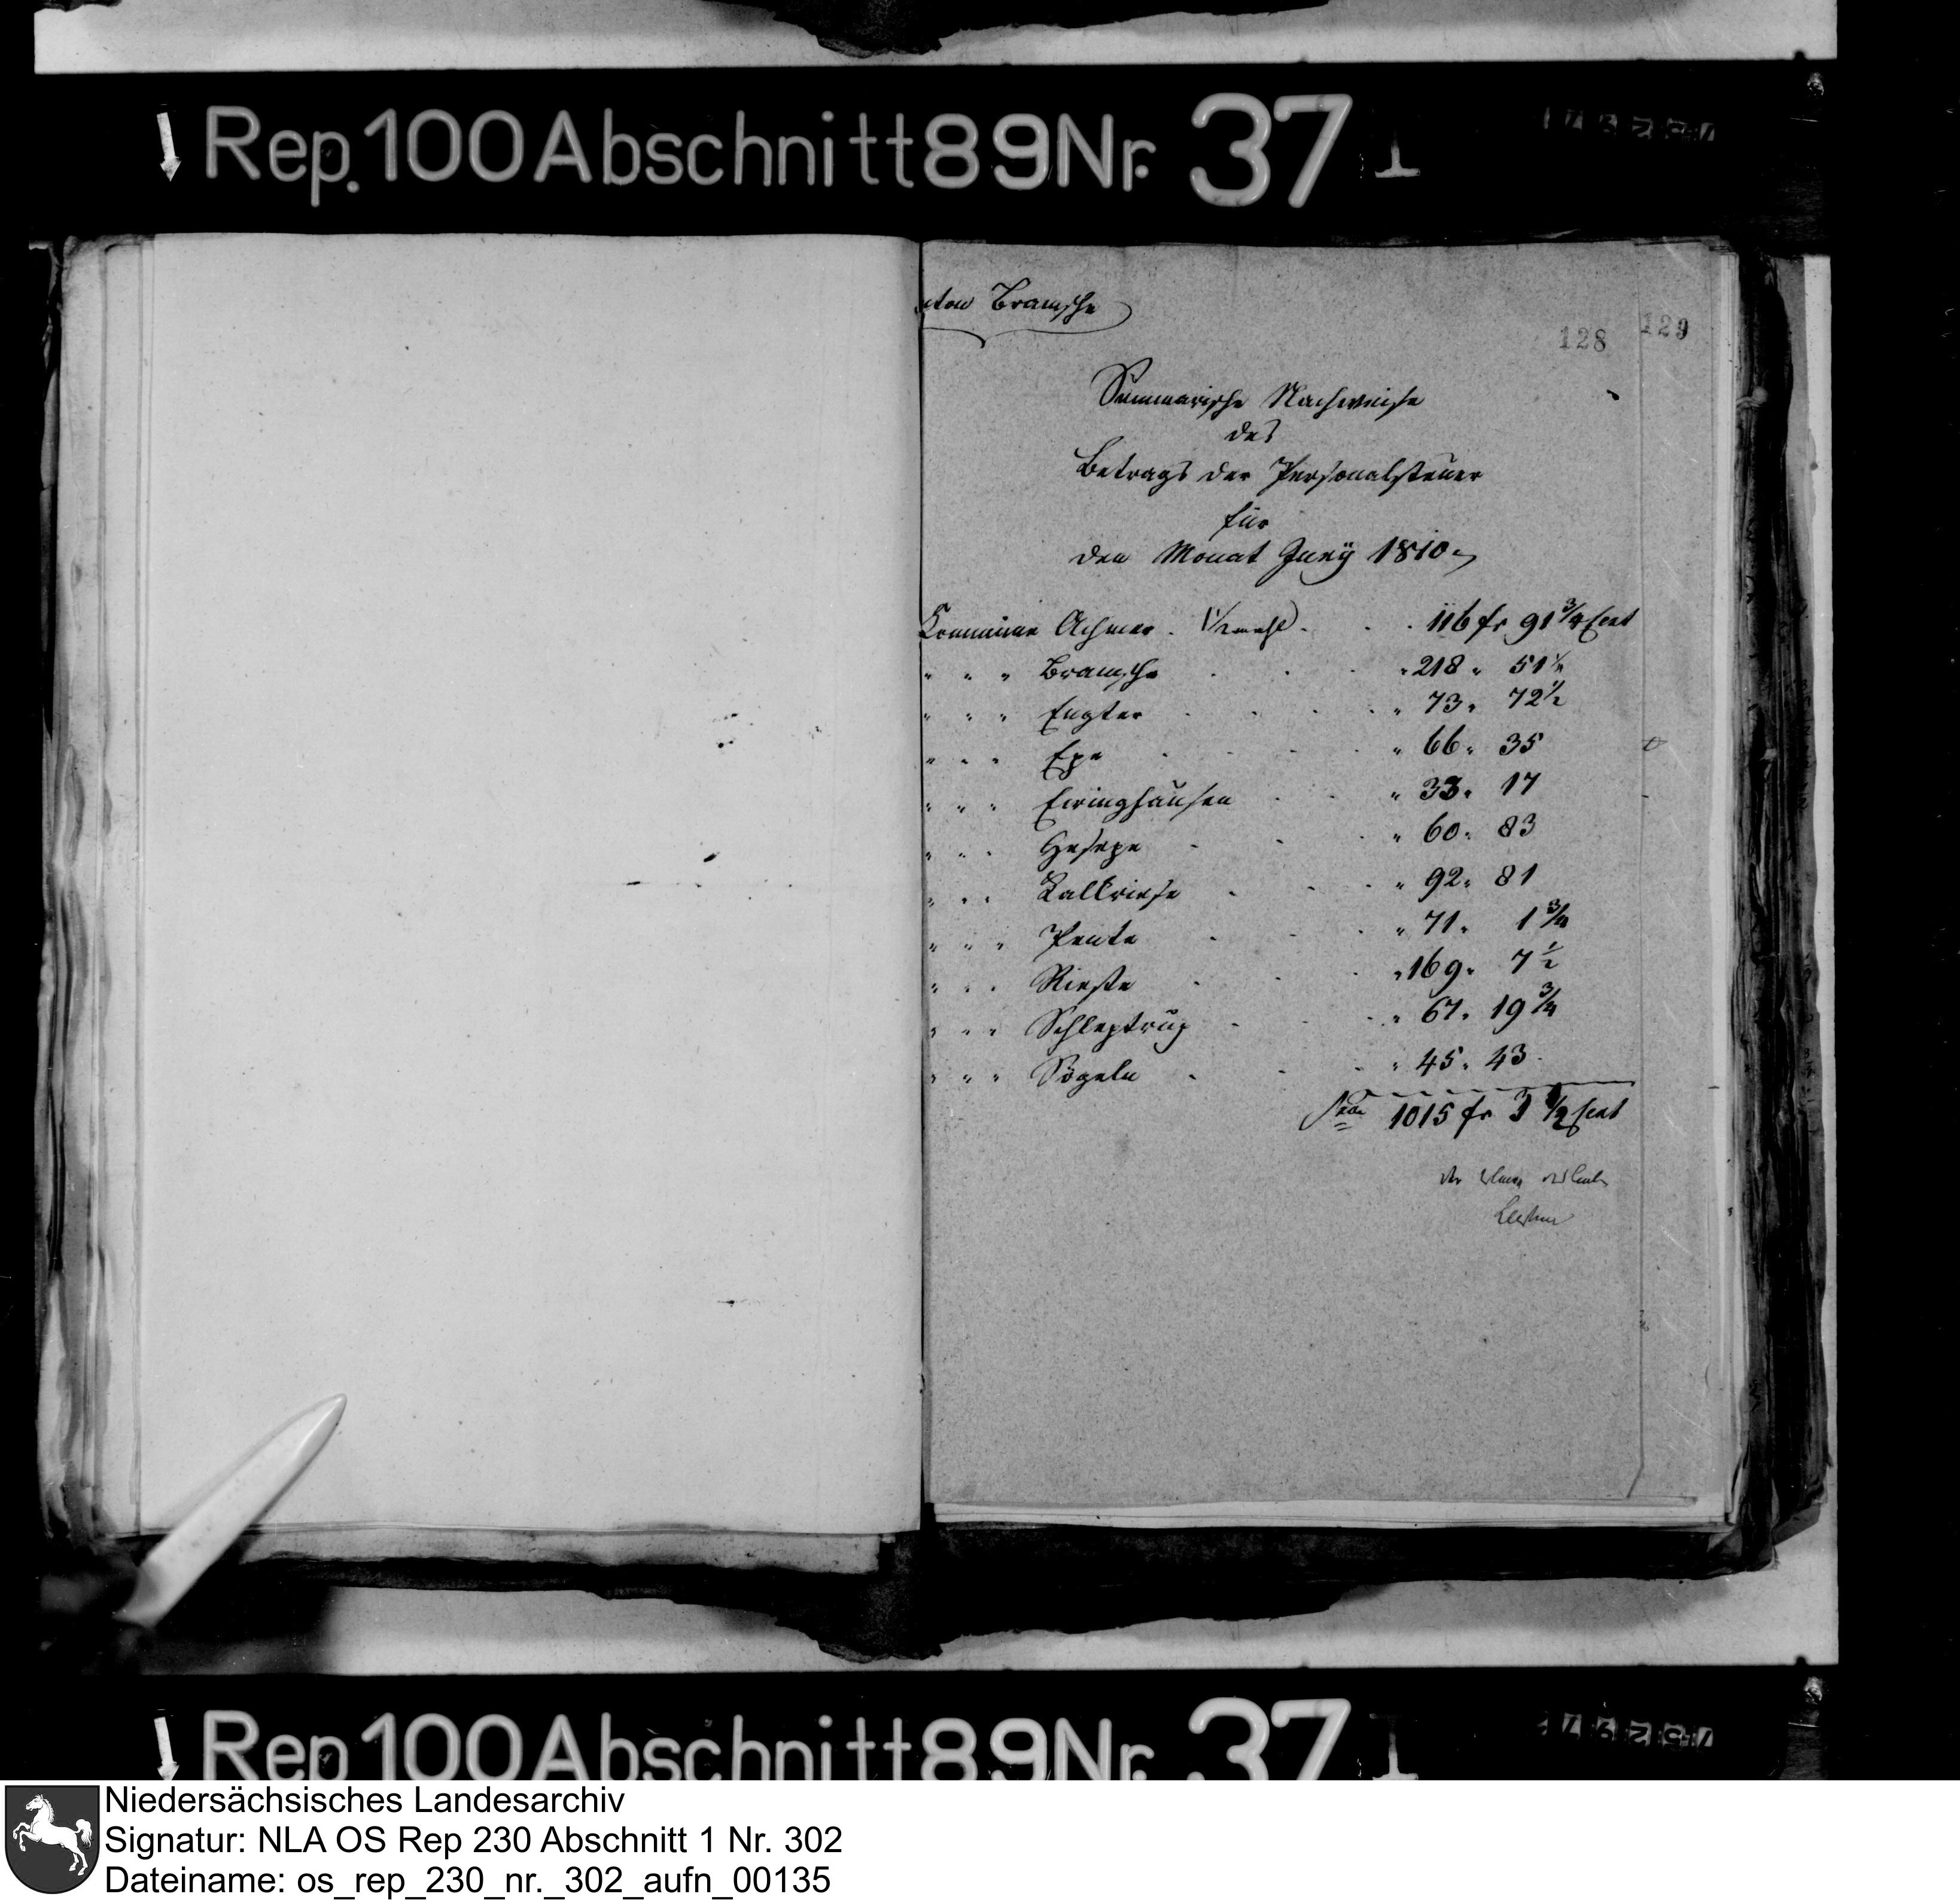 Rep. 100 Abschnitt 89 Nr. 37 I
nton Bramsche
128
129
Summarische Nachweise
des
Betrags der Personalsteuer
für
den Monat Juny 1810
Commüne Achmer . 1/2mahl . . . 116 fr 91 3/4 Cent
" " " Bramsche . . . " 218 " 51 1/2
" " " Engter . . . . " 73 " 72 1/2
" " " Epe . . . . " 66 " 35
" " " Eiringhausen . . " 33 " 17
" " " Hesepe . . . " 60 " 83
" " " Kalkriese . . . " 92 " 81
" " " Pente . . . " 71 " 1 3/4
" " " Rieste . . . " 169 " 7 1/2
" " " Schleptrup . . . " 67 " 19 3/4
" " " Sögeln . . . " 45 " 43
Sa 1015 fr 3 1/2 Cent
Rep. 100 Abschnitt 89 Nr. 37 I
Niedersächsisches Landesarchiv
Signatur: NLA OS Rep 230 Abschnitt 1 Nr. 302
Dateiname: os_rep_230_nr._302_aufn_00135